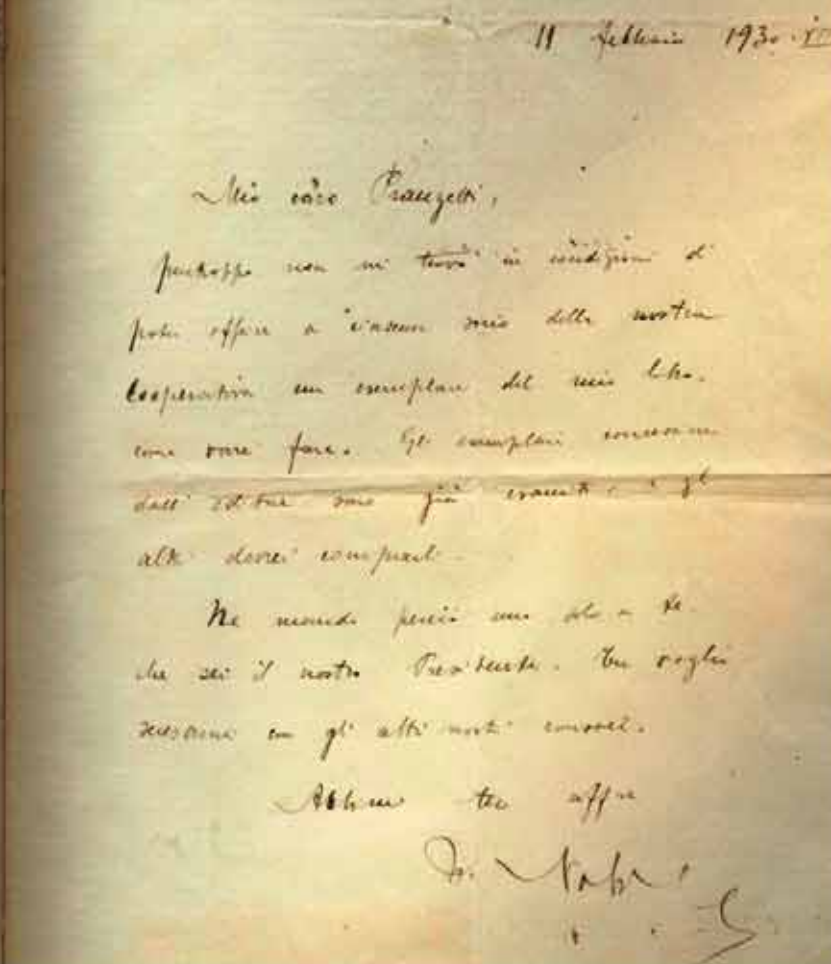 11 febbraio 1930
Mio caro Pranzetti,
purtroppo non mi trovo in condizioni di
poter offrire a ciascun socio della nostra
Cooperativa un esemplare del mio libro.
come vorrei fare. Gli esemplari
dall'editore sono già esauriti, e gli
altri dovrei comprarli.
Ne mando perciò uno solo a te.
che sei il nostro Presidente. Tu voglia
scusarmi con gli altri nostri consoci.
tuo aff.mo